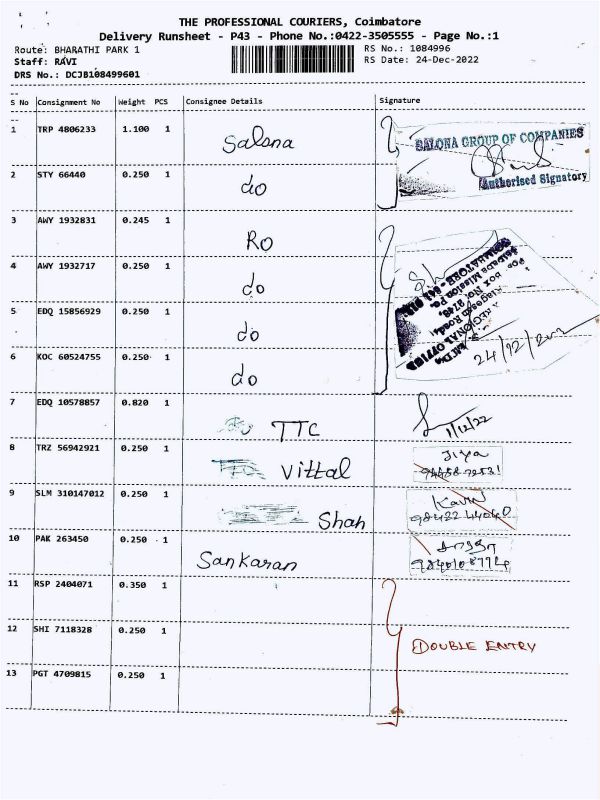 THE PROFESSIONAL COURIERS, Coimbatore
Delivery Runsheet - P43 - Phone No.:0422-3505555 - Page No.:1
Route: BHARATHI PARK 1 RS No.: 1084996
Staff: RAVI RS Date: 24-Dec-2022
DRS No.: DCJB108499601
S No Consignment No Weight PCS Consignee Details Signature
1 TRP 4806233 1.100 1 Salona SALONA GROUP OF COMPANIES
Authorised Signatory
2 STY 66440 0.250 1 do
3 AWY 1932831 0.245 1 RO
4 AWY 1932717 0.250 1 do
5 EDQ 15856929 0.250 1 do
6 KOC 60524755 0.250 1 do
REGIONAL OFFICE
Alagesan Road,
Saibaba Mission Po.
COIMBATORE - 641
24/12/202
7 EDQ 10578857 0.820 1 TTC 1/12/22
8 TRZ 56942921 0.250 1 Vittal Jiya
9 SLM 310147012 0.250 1 Shah Kavin
98422 44040
10 PAK 263450 0.250 1 Sankaran
11 RSP 2404071 0.350 1
12 SHI 7118328 0.250 1 DOUBLE ENTRY
13 PGT 4709815 0.250 1